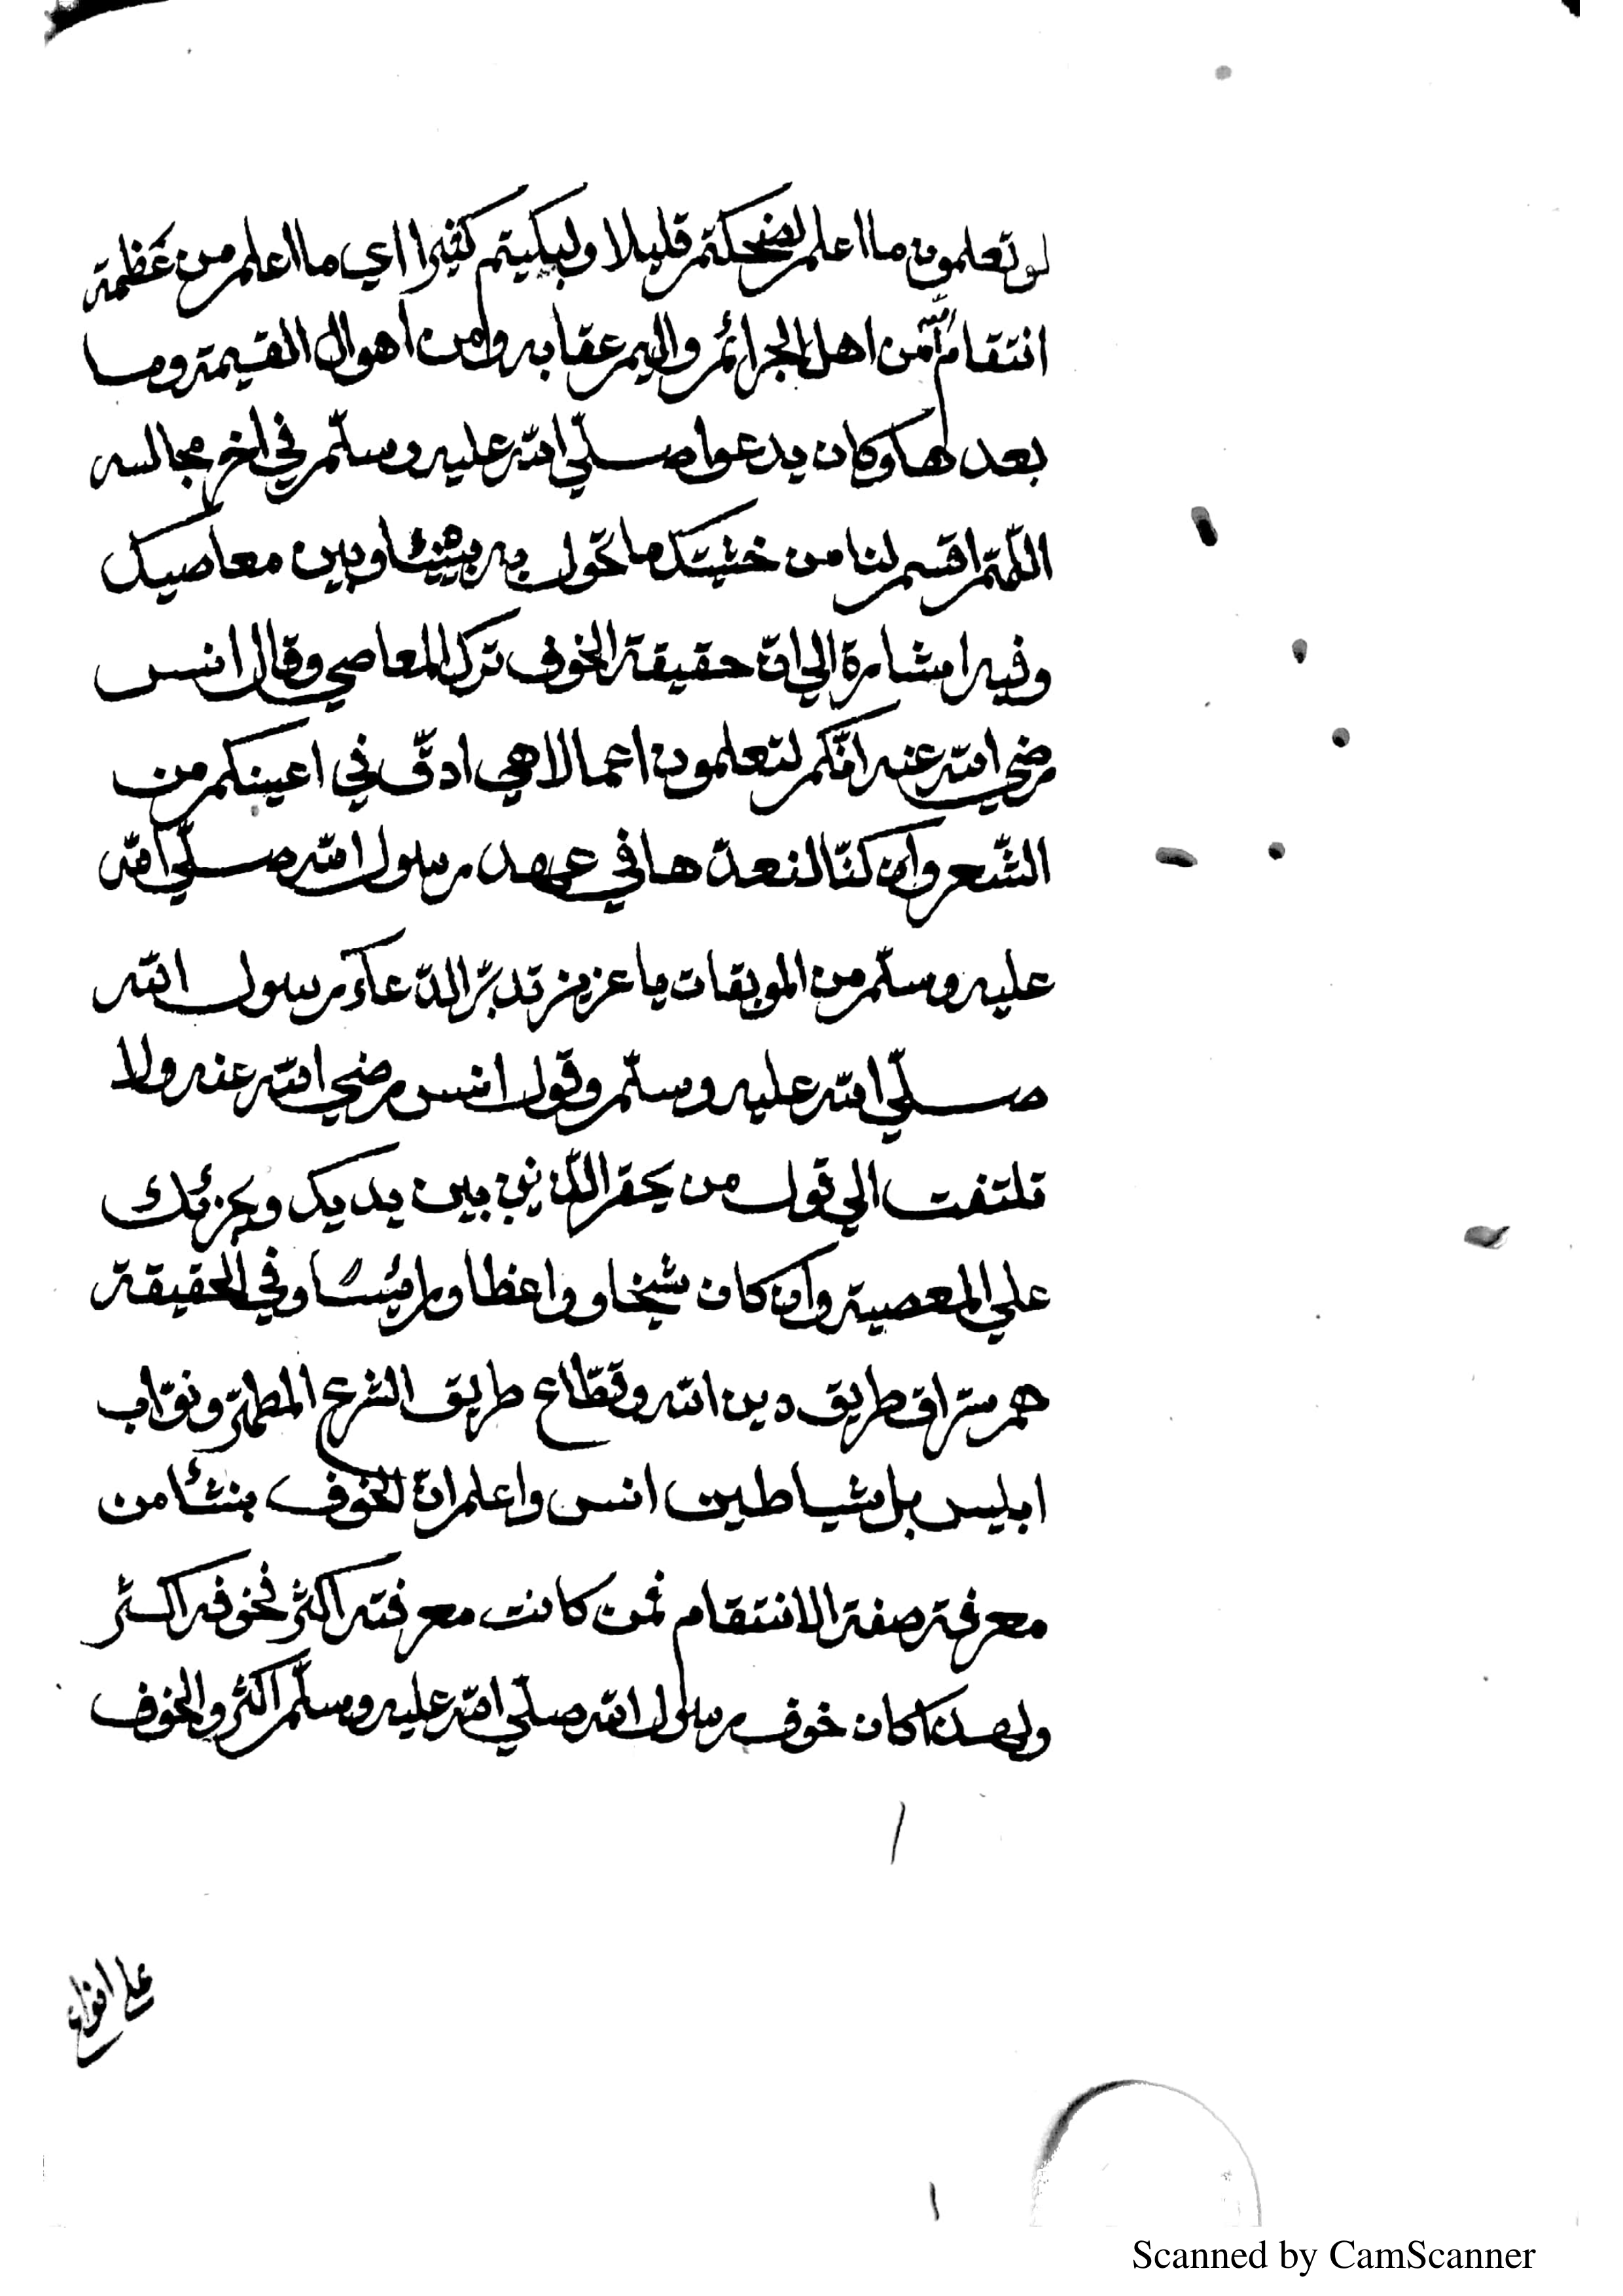 لو تعلمون ما اعلم لضحكتم قليلا ولبكيتم كثيرا اي ما اعلم من عظمة
انتقام اللّه من اهل الجرائم واليم عقابه وامن اهوال القيمة وما
بعد لها وكان يدعوا صلّي اللّه عليه وسلّم في اخر مجالسه
اللّهمّ اقسم لنا من خشيتك ما تحّول به بيننا وبين معاصيك
وفيه اشارة الي انّ حقيقة الخوف ترك المعاصي وقال انس
رضي اللّه عنه انّكم لتعلمون اعمالا هي ادقّ في اعينكم من
الشّعر وان كنّا لنعدّ ها في عهد رسول اللّه صلّي اللّه
عليه وسلّم من الموبقات يا عزيز تدبّر الدّعاء رسول اللّه
صلّي اللّه عليه وسلّم وقول انس رضي اللّه عنه ولا
تلتفت الي قول من يحقر الدّين بين يديك ويجرئك
علي المعصية وان كان شيخا وواعظا ورائيسا وفي الحقيقة
هم سرّاق طريق دين اللّه وقطّاع طريق الشرع المطهّر ونوّاب
ابليس بل شياطين انس واعلم انّ الخوف ينشأ من
معرفة صفة الانتقام فمن كانت معرفته اكثر فخوفه اكثر
ولهذا كان خوف رسول اللّه صلّي اللّه عليه وسلّم اكثر والخوف
علي انواع
Scanned by CamScanner